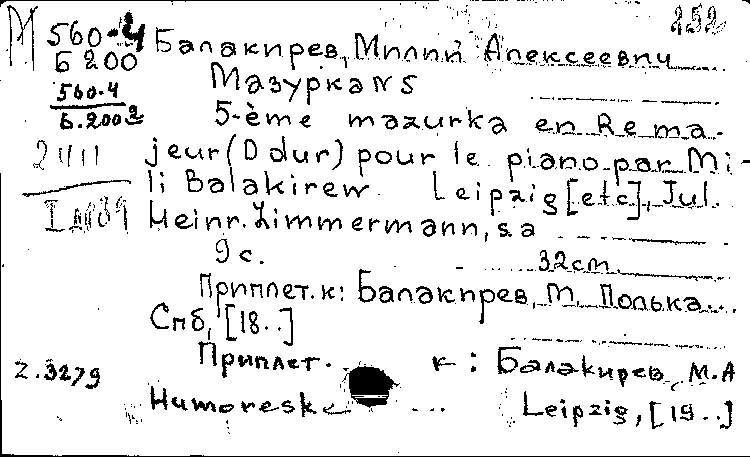 М 560-4 252
Б 200 Балакирев, Милий Алексеевич
560.4 Мазурка N 5
Б.200 2 5-ème mazurka en Re ma-
2411 jeur (D dur) pour le piano par Mi-
li Balakirew. Leipzig [etc], Jul.
Heinr. Zimmermann, s.a
9 с. 32cm.
Приплет. к: Балакирев, М. Полька...
Спб, [18..]
Z.3279 Приплет. к: Балакирев, М.А
Humoreske ... Leipzig, [19..]